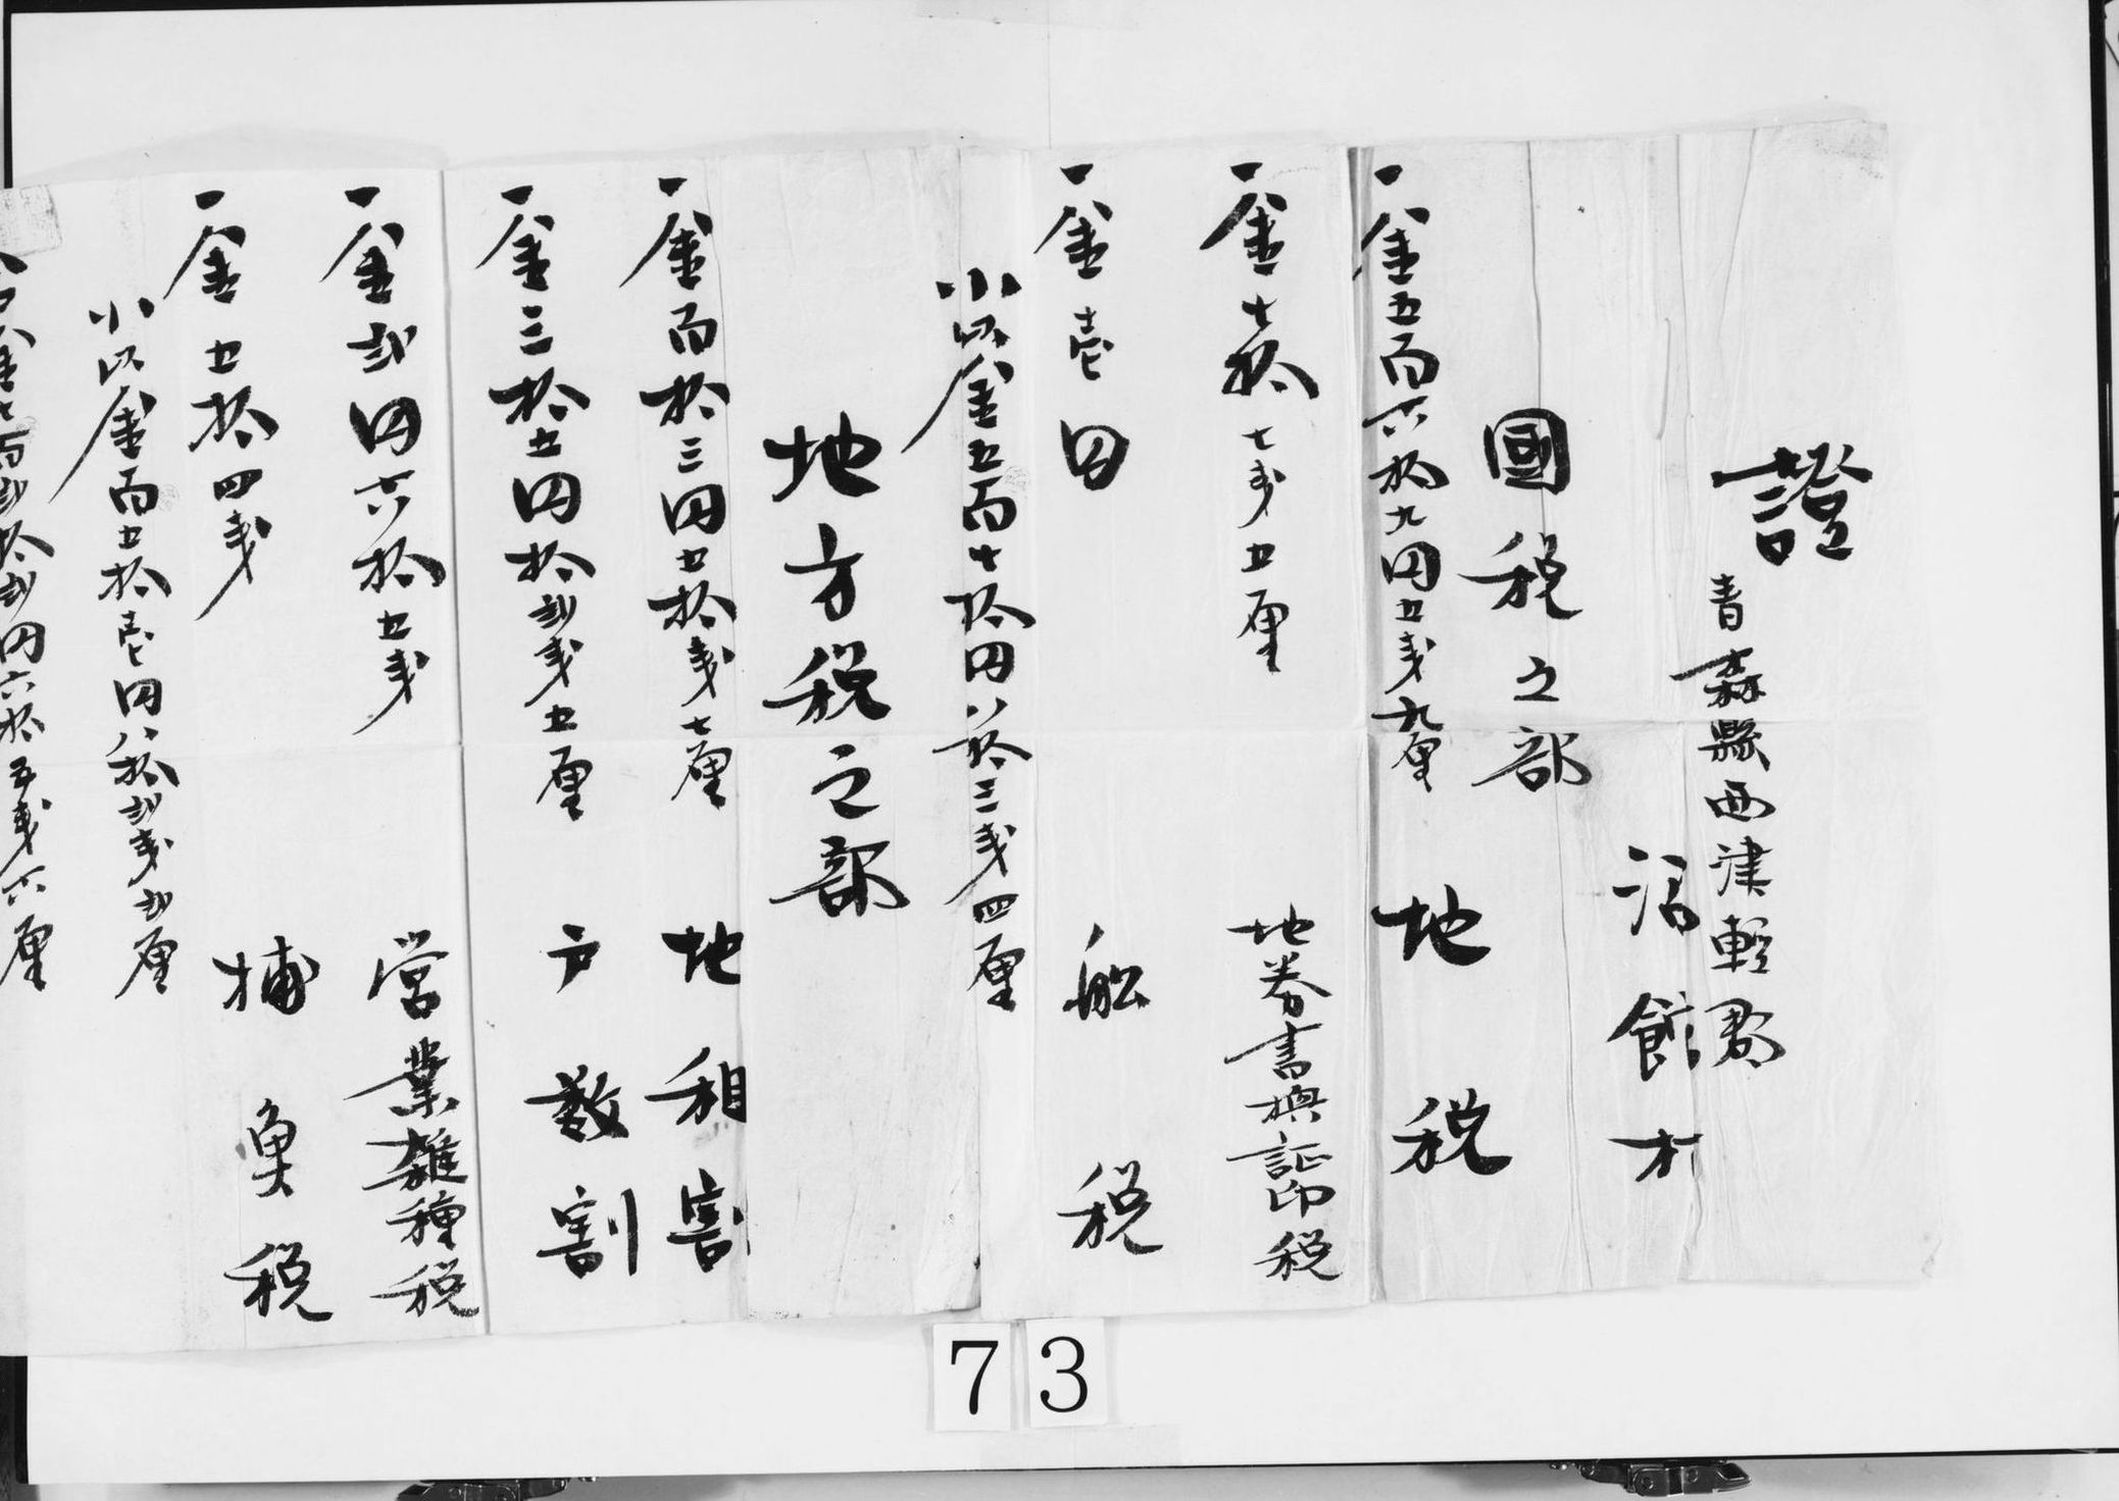 證
青森縣西津軽郡
沼館村
國税之部
一金五百六拾九円五戋九厘 地税
一金七拾七戋五厘 地券書換証印税
一金壱円 船税
小以金五百七拾円八拾三戋四厘
地方税之部
一金百拾三円五拾戋七厘 地租割
一金三拾五円拾弐戋五厘 戸数割
一金弐円六拾五戋 営業雑種税
一金五拾四戋 捕魚税
小以金百五拾壱円八拾弐戋弐厘
金七百弐拾弐円六拾五戋六厘
73